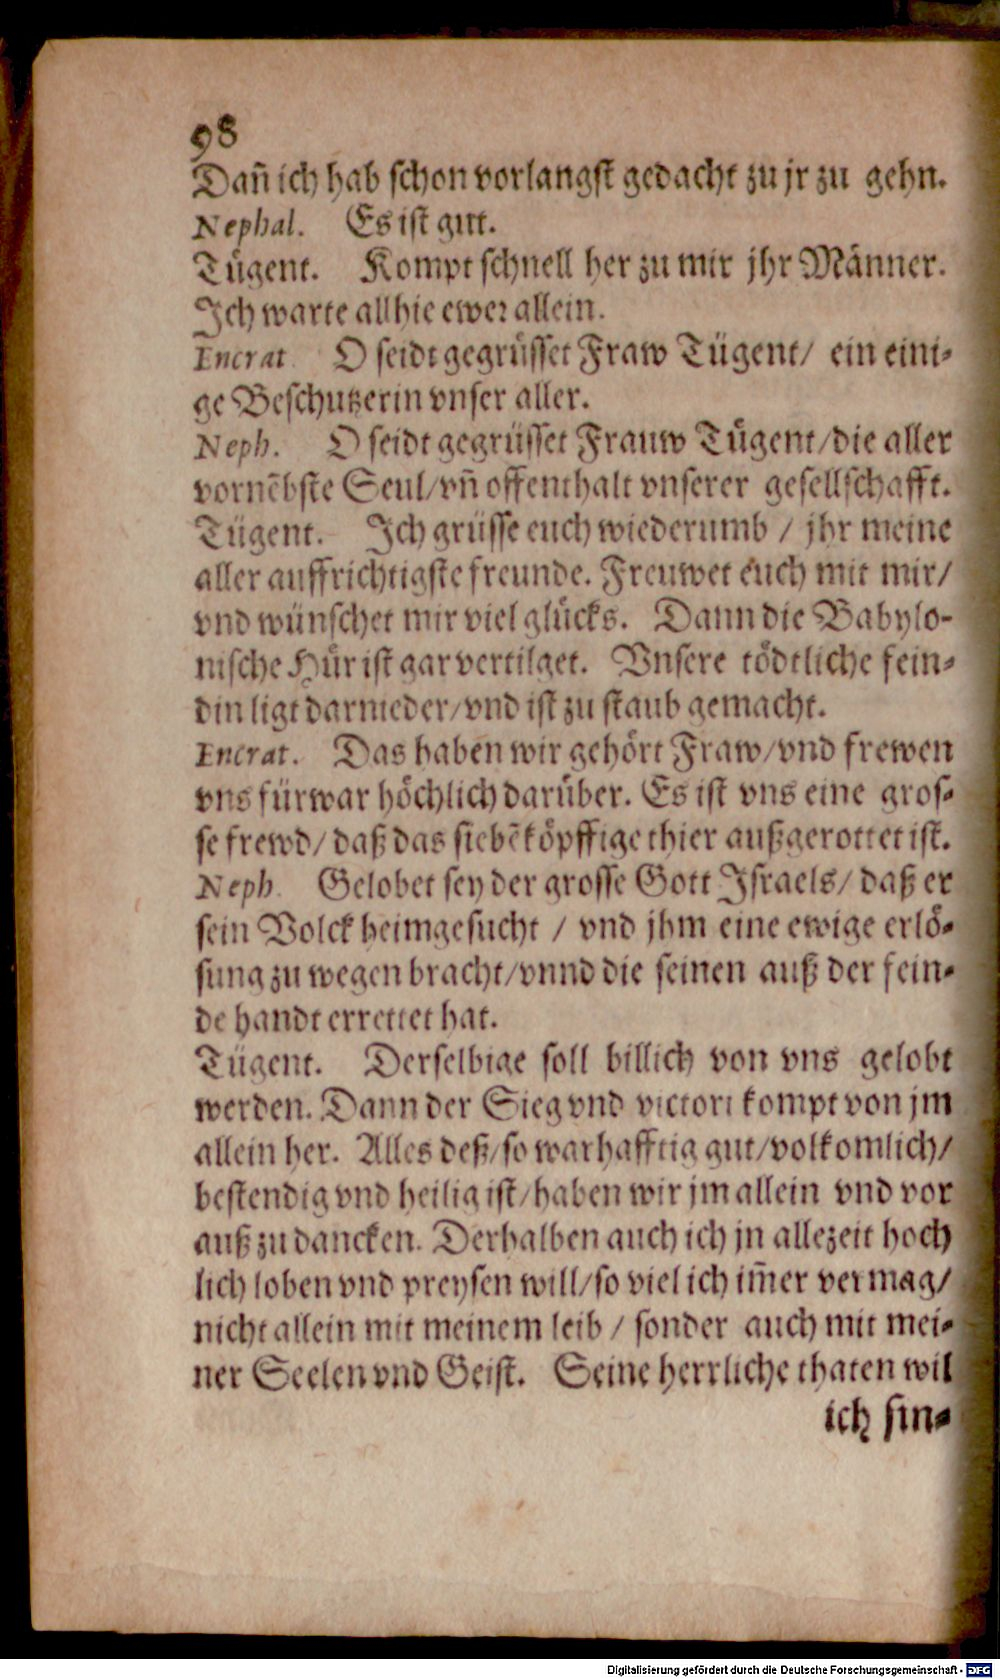 98
Dañ ich hab schon vorlangst gedacht zu jr zu gehn.
Nephal. Es ist gut.
Tügent. Kompt schnell her zu mir jhr Männer.
Ich warte allhie ewer allein.
Encrat. O seidt gegrüsset Fraw Tügent/ ein eini-
ge Beschutzerin vnser aller.
Neph. O seidt gegrüsset Frauw Tügent/die aller
vornẽbste Seul/vñ offenthalt vnserer gesellschafft.
Tügent. Ich grüsse euch wiederumb / jhr meine
aller auffrichtigste freunde. Freuwet euch mit mir/
vnd wünschet mir viel glücks. Dann die Babylo-
nische Hür ist gar vertilget. Vnsere tödtliche fein-
din ligt darnieder/vnd ist zu staub gemacht.
Encrat. Das haben wir gehört Fraw/vnd frewen
vns fürwar höchlich darüber. Es ist vns eine gros-
se frewd/ daß das siebẽköpffige thier außgerottet ist.
Neph. Gelobet sey der grosse Gott Israels/ daß er
sein Volck heimgesucht / vnd jhm eine ewige erlö-
sung zu wegen bracht/vnnd die seinen auß der fein-
de handt errettet hat.
Tügent. Derselbige soll billich von vns gelobt
werden. Dann der Sieg vnd victori kompt von jm
allein her. Alles deß/so warhafftig gut/volkomlich/
bestendig vnd heilig ist/haben wir jm allein vnd vor
auß zu dancken. Derhalben auch ich jn allezeit hoch
lich loben vnd preysen will/so viel ich im̃er vermag/
nicht allein mit meinem leib / sonder auch mit mei-
ner Seelen vnd Geist. Seine herrliche thaten wil
ich sin-
Digitalisierung gefördert durch die Deutsche Forschungsgemeinschaft - DFG